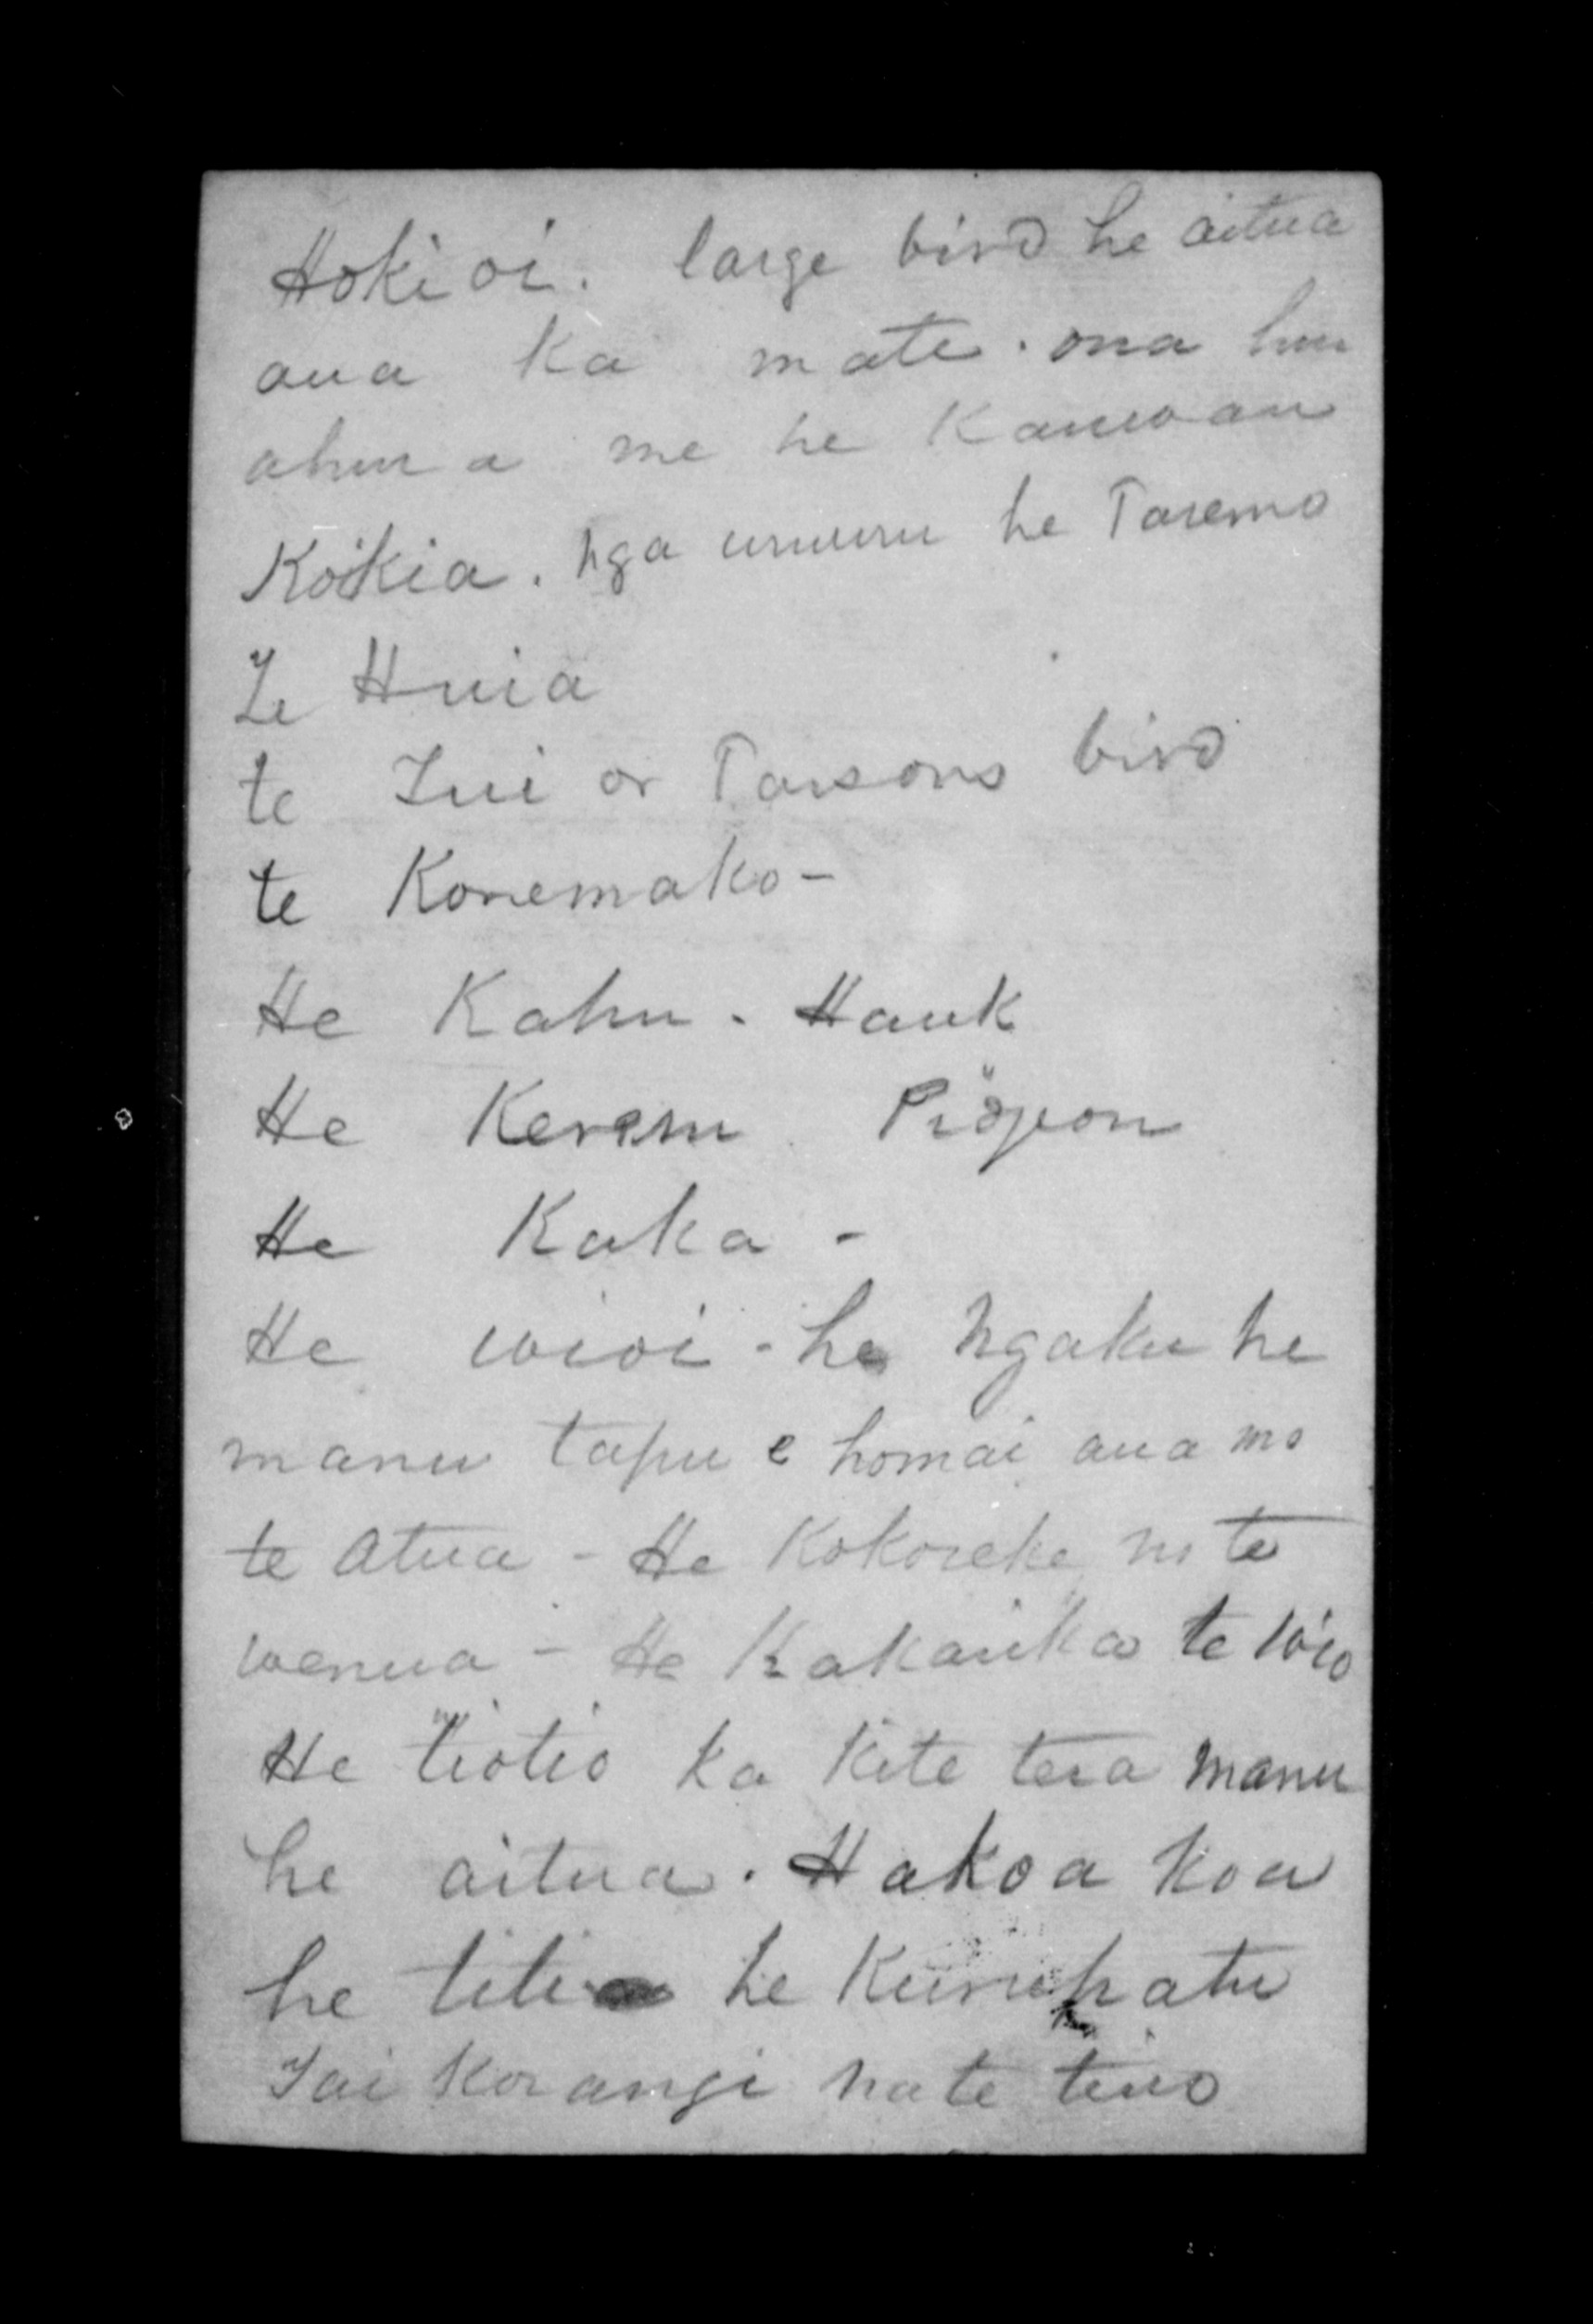 Hokioi. large bird he aitua
ana ka mate. ona huru
ahua me he Kauwau
Koikia. nga uruuru he Taremo
Te Huia
te Tui or Parsons bird
te Korremako-
He Kahu. Hauk
He Kereru Pigeon
He Kaka -
He wioi - he ngaku he
manu tapu e homai ana mo
te atua - He Kokoreke no te
wenua - He Kakarika te Wio
He tiotio ka kite tera manu
he aitua. Hakoa koa
he titi he Kuruhatu
Tai Korangi na te